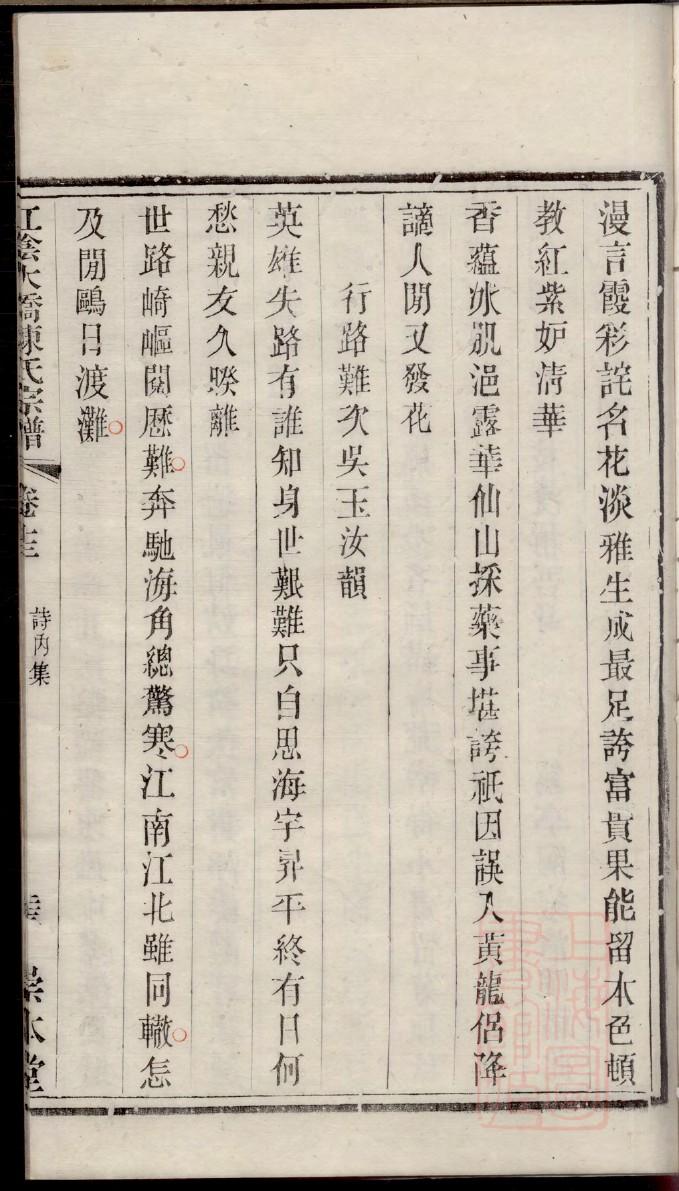 漫言霞彩詫名花淡雅生成最足誇富貴果能留本色頓
教紅紫妒清華
香蘊冰肌浥露華仙山採藥事堪誇祇因誤入黃龍侶降
謫人閒又發花
行路難次吳玉汝韻
英雄失路有誰知身世艱難只自思海宇昇平終有日何
愁親友久暌離
世路崎嶇閱歷難奔馳海角總驚寒江南江北雖同轍怎
及閒鷗日渡灘
江陰大橋陳氏宗譜 卷十三 詩內集 崇本堂